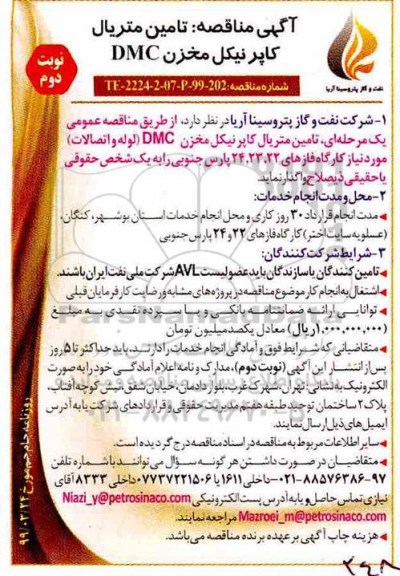 آگهی مناقصه: تامین متریال
کاپر نیکل مخزن DMC
نوبت
دوم
نفت و گاز پتروسینا آریا
شماره مناقصه: TE-2224-2-07-P-99-202
۱- شرکت نفت و گاز پتروسینا آریا در نظر دارد، از طریق مناقصه عمومی
یک مرحله‌ای، تامین متریال کاپر نیکل مخزن DMC (لوله و اتصالات)
مورد نیاز کارگاه فازهای ۲۲،۲۳،۲۴ پارس جنوبی را به یک شخص حقوقی
یا حقیقی ذیصلاح واگذار نماید.
۲- محل و مدت انجام خدمات:
مدت انجام قرارداد ۳۰ روز کاری و محل انجام خدمات استان بوشهر، کنگان،
(عسلویه سایت اختر) کارگاه فازهای ۲۲ و ۲۴ پارس جنوبی
۳- شرایط شرکت کنندگان:
تامین کنندگان یا سازندگان باید عضو لیست AVL شرکت ملی نفت ایران باشند.
اشتغال به انجام کار موضوع مناقصه در پروژه‌های مشابه و رضایت کارفرمایان قبلی
توانایی ارائه ضمانتنامه بانکی و یا سپرده نقدی به مبلغ
(۱,۰۰۰,۰۰۰,۰۰۰ ریال) معادل یکصد میلیون تومان
متقاضیانی که شرایط فوق و آمادگی انجام خدمات را دارند، باید حداکثر تا ۵ روز
پس از انتشار این آگهی (نوبت دوم)، مدارک و نامه اعلام آمادگی خود را به صورت
الکترونیک به نشانی: تهران، شهرک غرب، بلوار دادمان، خیابان شفق، نبش کوچه آفتاب،
پلاک ۲ ساختمان توحید طبقه هفتم مدیریت حقوقی و قراردادهای شرکت یا به آدرس
ایمیل‌های ذیل ارسال نمایند.
سایر اطلاعات مربوط به مناقصه در اسناد مناقصه درج گردیده است.
متقاضیان در صورت داشتن هر گونه سؤال می‌توانند با شماره تلفن
۹۷-۸۸۵۷۶۳۸۶-۰۲۱ داخلی ۱۶۱۱ یا ۰۷۷۳۷۲۲۱۵۰۶ داخلی ۸۳۳۳ آقای
نیازی تماس حاصل و یا به آدرس پست الکترونیکی Niazi_y@petrosinaco.com
Mazroei_m@petrosinaco.com مراجعه نمایند.
هزینه چاپ آگهی بر عهده برنده مناقصه می‌باشد.
روزنامه جام جم مورخ ۹۹/۰۳/۲۴